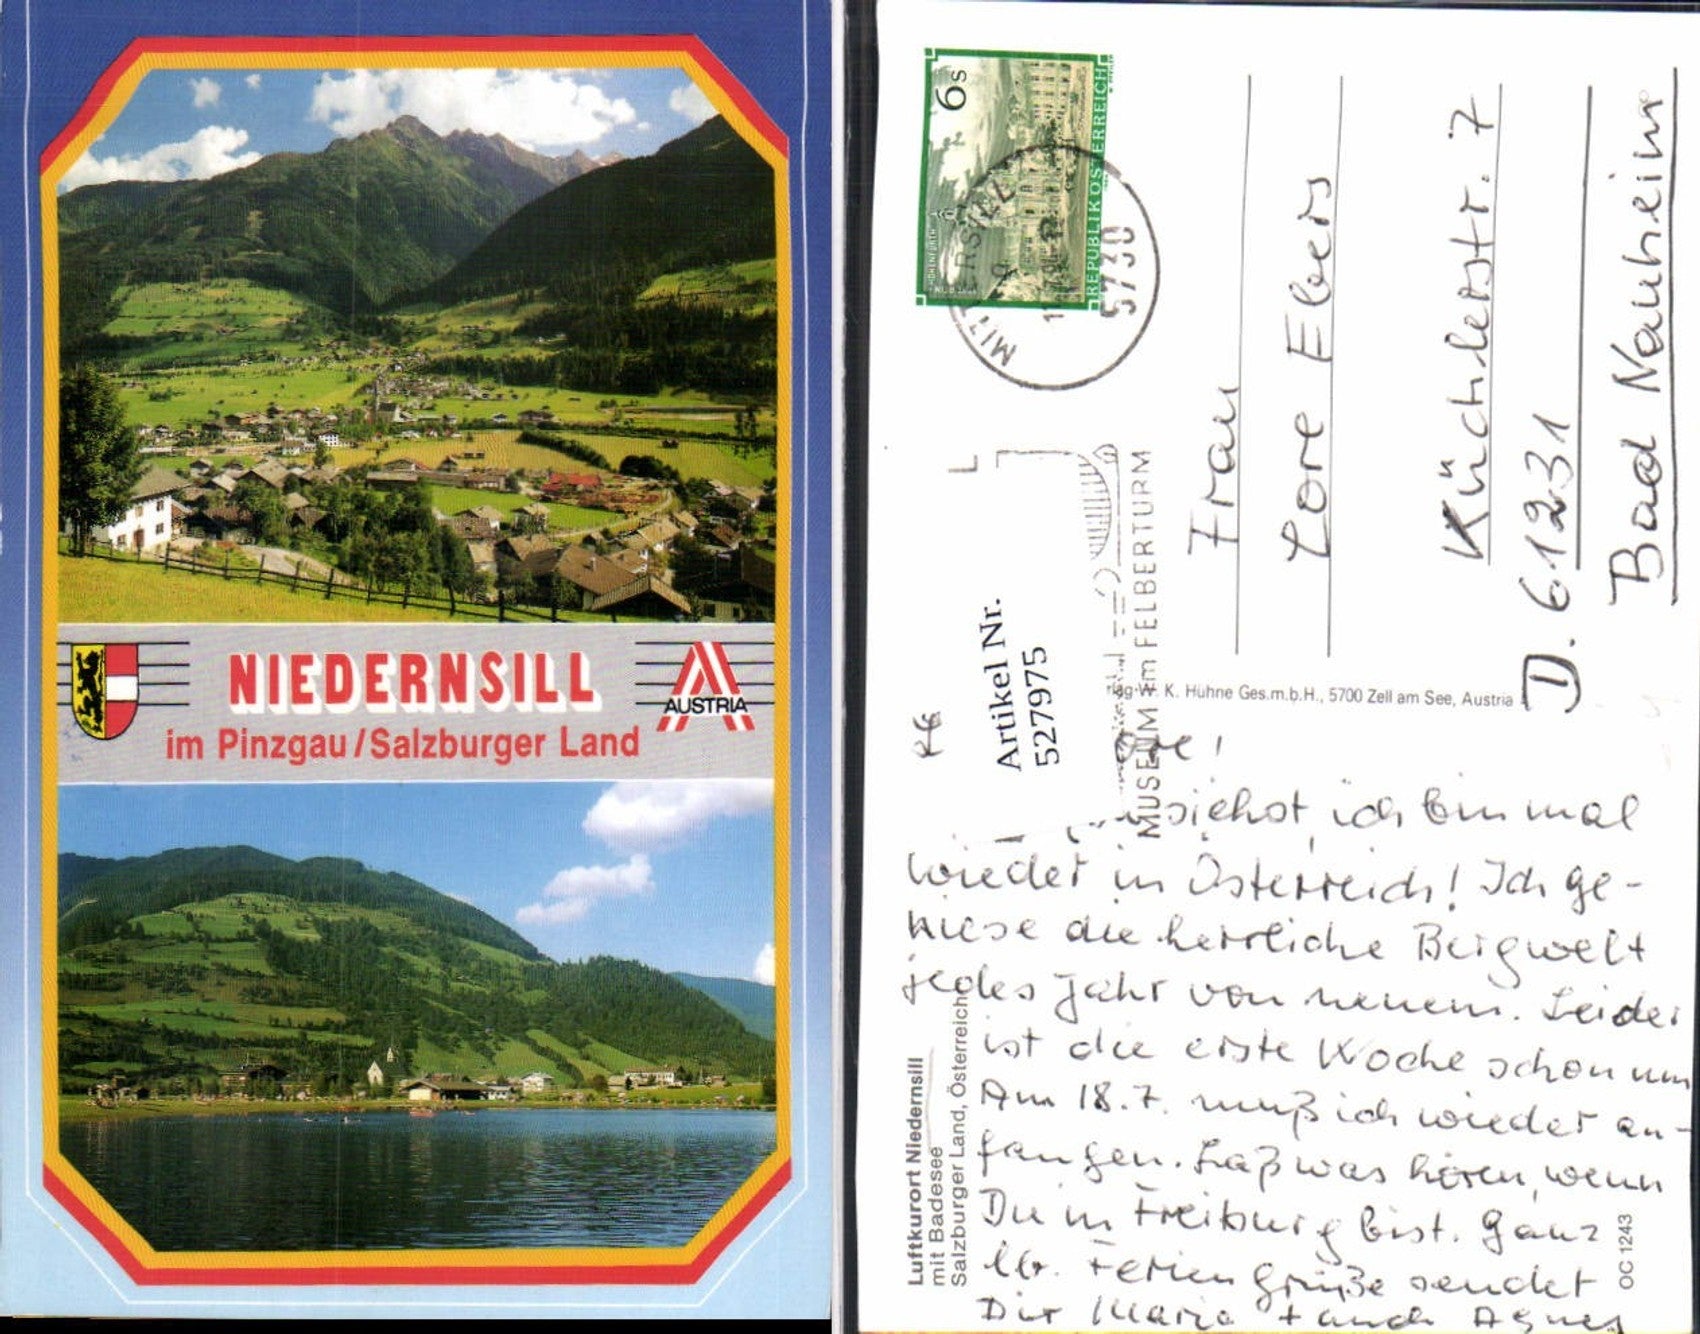 NIEDERNSILL
AUSTRIA
im Pinzgau/Salzburger Land
6s
REPUBLIK OSTERREICH
5730
MUSEUM im FELBERTURM
Artikel Nr.
5277975
Frau
Lore Ebers
Küchlerstr. 7
D. 61231
Bad Nauheim
W. K. Hühne Ges.m.b.H., 5700 Zell am See, Austria
siehst, ich bin mal
wieder in Österreich! Ich ge-
niese die herrliche Bergwelt
jedes Jahr von neuem. Leider
ist die erste Woche schon um
Am 18.7. muß ich wieder an-
fangen. Laß was hören, wenn
Du in Freiburg bist. Ganz
lb. Feriengrüße sendet
Dir Maria + auch Agnes
Luftkurort Niedernsill
mit Badesee
Salzburger Land, Österreich
OC 1243